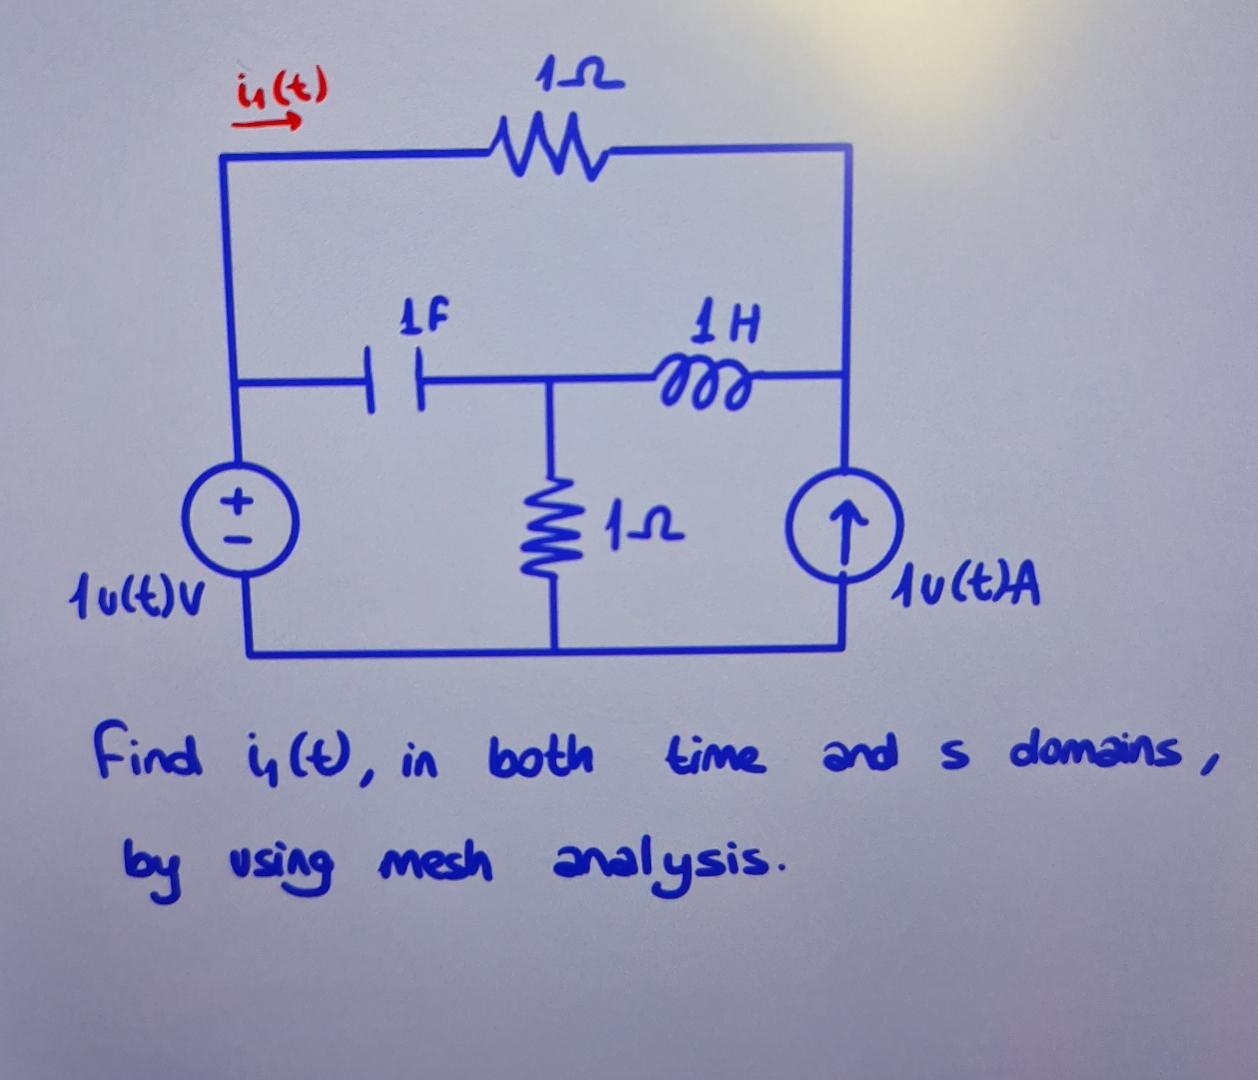 i₁(t)
1Ω
1F
1H
+
-
1Ω
1u(t)V
1u(t)A
Find i₁(t), in both time and s domains,
by using mesh analysis.